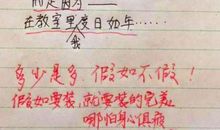 而是因为——
在教室里度日如年……
我
多少是多，假如不假！
假如要装，就要装的完美
哪怕身心俱疲